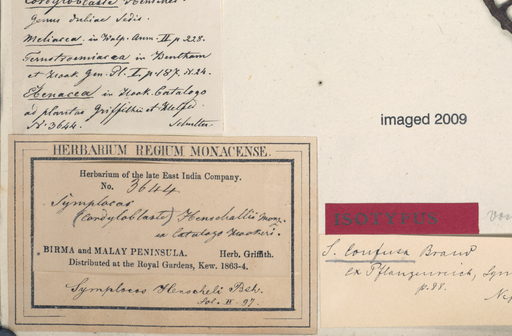 Genus dubiae Sedis.
Meliacea in Walp. Ann. II p. 228.
Ternstroemiacea in Bentham
et Hook Gen. Pl. I, p. 187. N. 24.
Ebenacea in Hook. Catalogo
ad plantas Griffithii et Helfer.
N. 3644.
HERBARIUM REGIUM MONACENSE.
Herbarium of the late East India Company.
No. 3644
Symplocos
(Cordyloblaste) Henschallii
ex Catalogo Hookeri.
BIRMA and MALAY PENINSULA. Herb. Griffith.
Distributed at the Royal Gardens, Kew. 1863-4.
Symplocos Henscheli Bth.
imaged 2009
ISOTYPUS
S. confusa Brand
ex Pflanzenreich, Sym
p. 88.